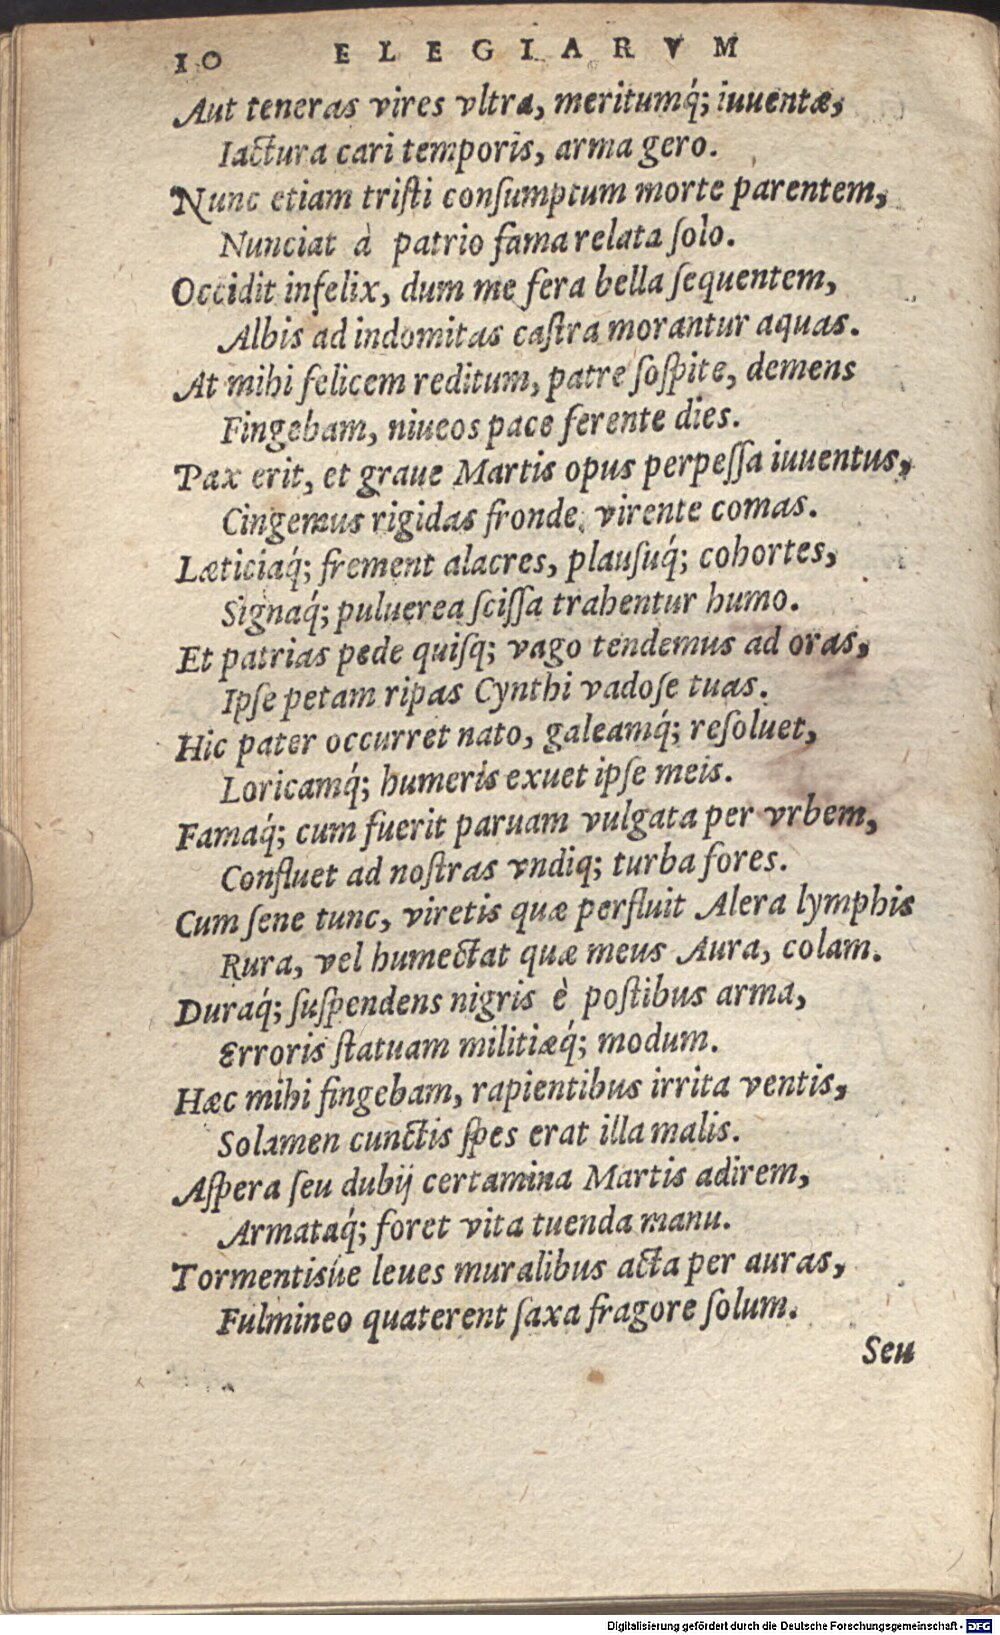 10 ELEGIARVM
Aut teneras vires vltra, meritumq́; iuuentæ,
Iactura cari temporis, arma gero.
Nunc etiam tristi consumptum morte parentem,
Nunciat à patrio fama relata solo.
Occidit infelix, dum me fera bella sequentem,
Albis ad indomitas castra morantur aquas.
At mihi felicem reditum, patre sospite, demens
Fingebam, niueos pace ferente dies.
Pax erit, et graue Martis opus perpessa iuuentus,
Cingemus rigidas fronde virente comas.
Læticiaq́; frement alacres, plausuq́; cohortes,
Signaq́; puluerea scissa trahentur humo.
Et patrias pede quisq; vago tendemus ad oras,
Ipse petam ripas Cynthi vadose tuas.
Hic pater occurret nato, galeamq́; resoluet,
Loricamq́; humeris exuet ipse meis.
Famaq́; cum fuerit paruam vulgata per vrbem,
Confluet ad nostras vndiq; turba fores.
Cum sene tunc, viretis quæ perfluit Alera lymphis
Rura, vel humectat quæ meus Aura, colam.
Duraq́; suspendens nigris è postibus arma,
Erroris statuam militiæq́; modum.
Hæc mihi fingebam, rapientibus irrita ventis,
Solamen cunctis spes erat illa malis.
Aspera seu dubij certamina Martis adirem,
Armataq́; foret vita tuenda manu.
Tormentisúe leues muralibus acta per auras,
Fulmineo quaterent saxa fragore solum.
Seu
Digitalisierung gefördert durch die Deutsche Forschungsgemeinschaft - DFG